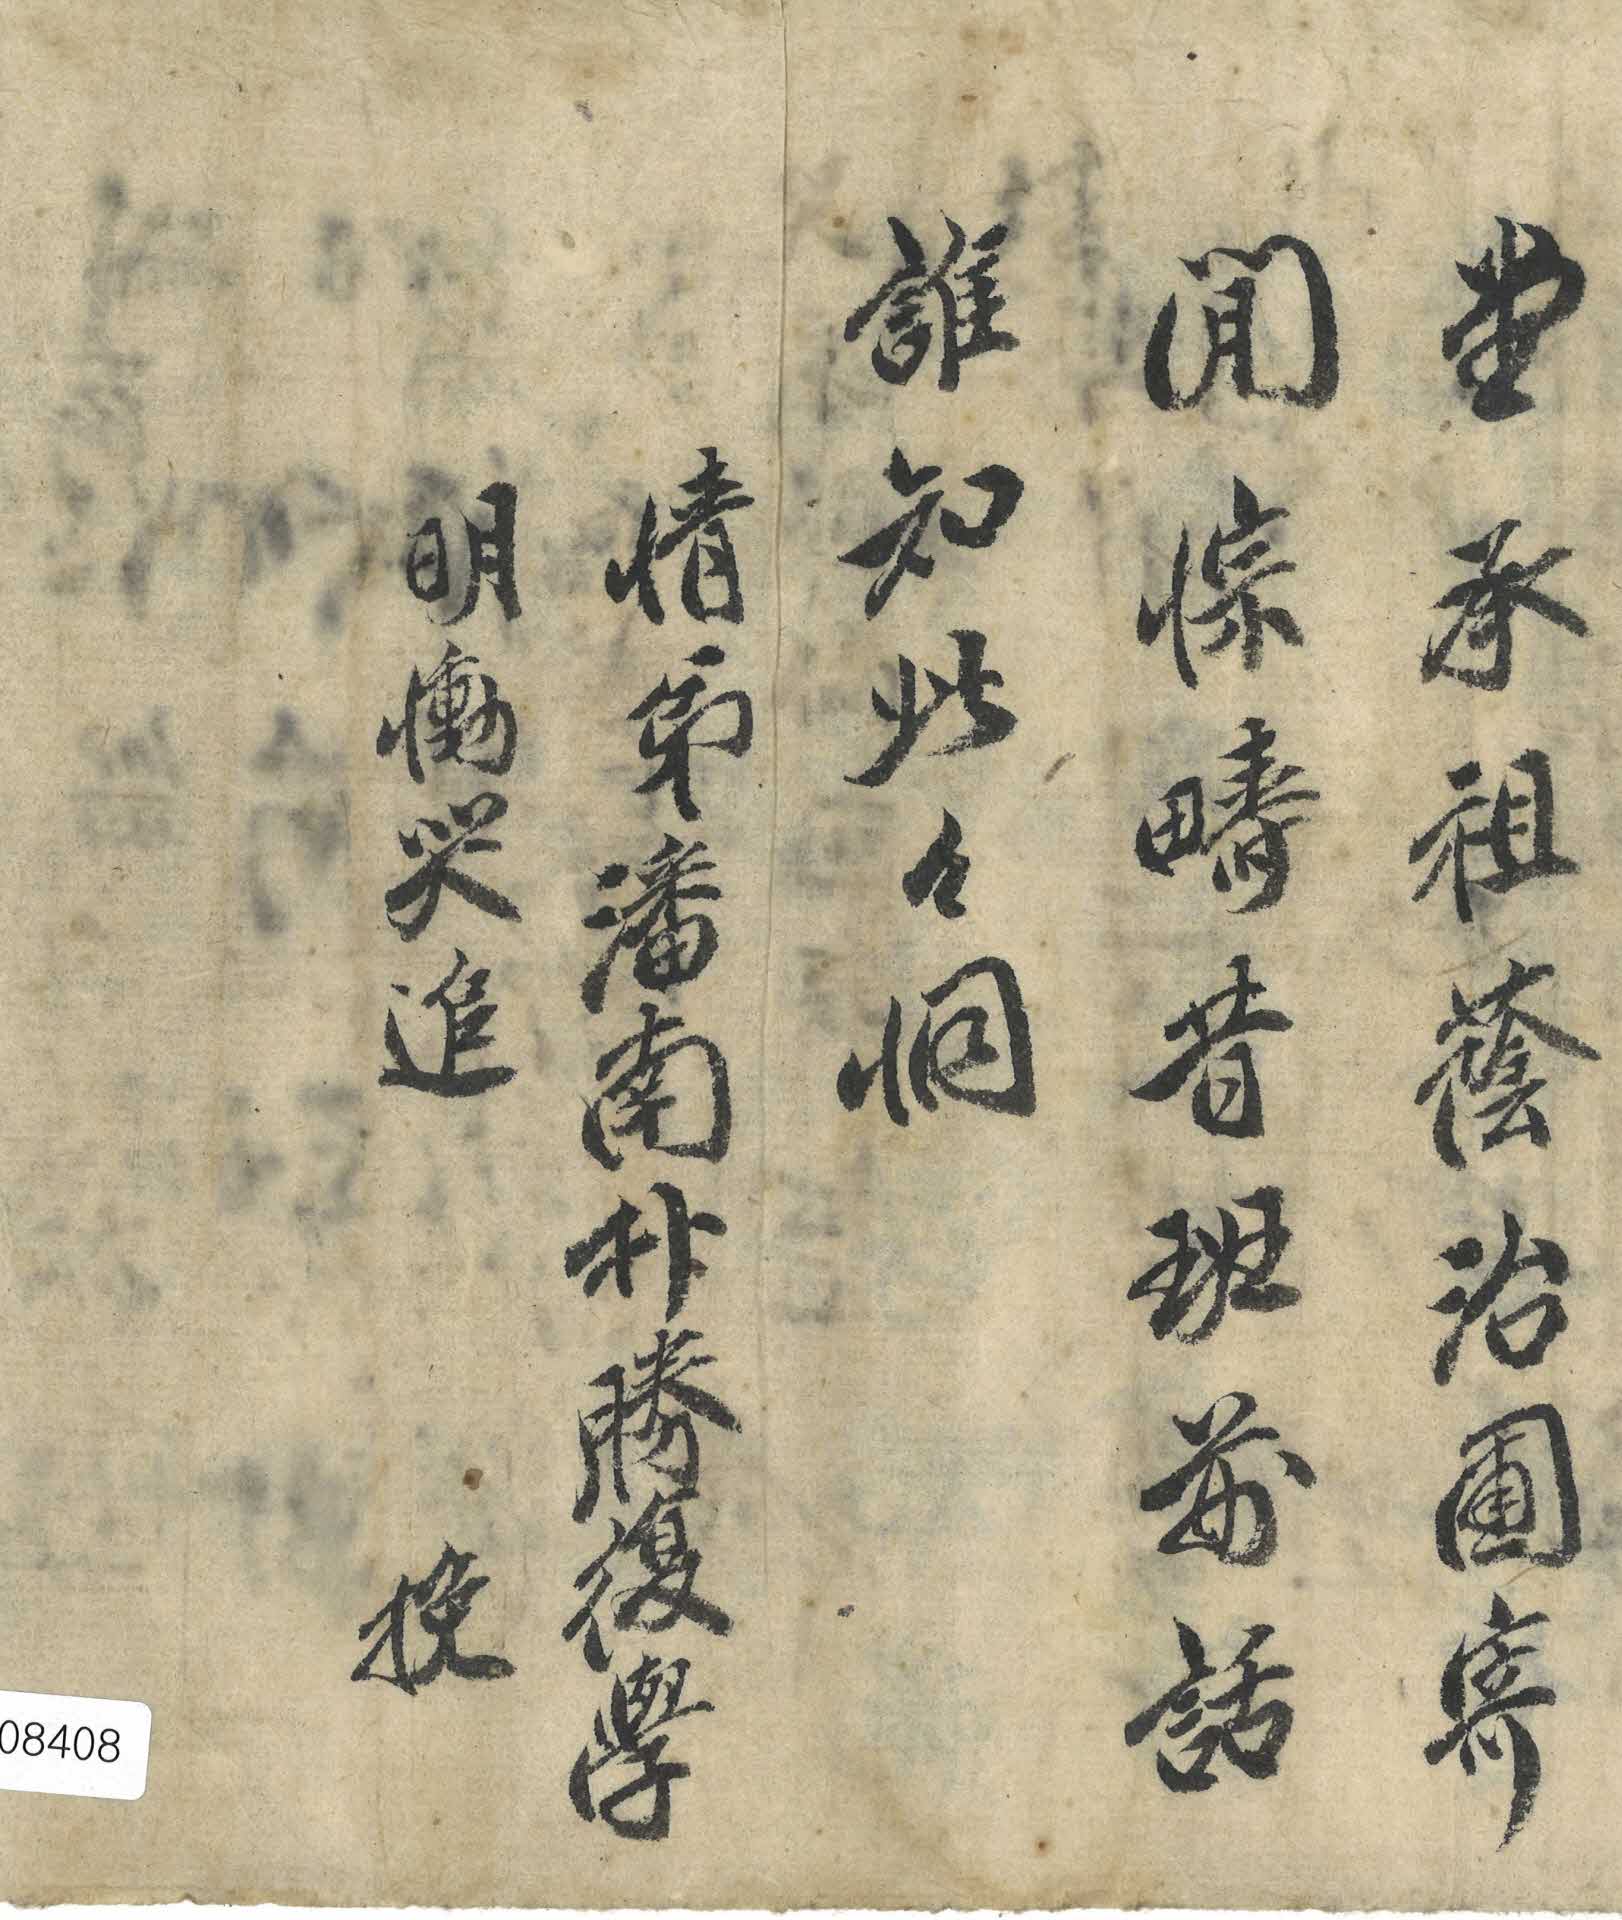 堂承祖蔭治圃寄
閒悰疇昔班荊話
誰知此々恫
情弟潘南朴勝復學
明慟哭追
挽
08408